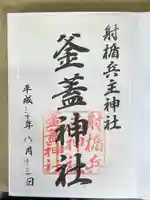 射楯兵主神社
釜蓋神社
平成三十年八月十三日
射楯兵